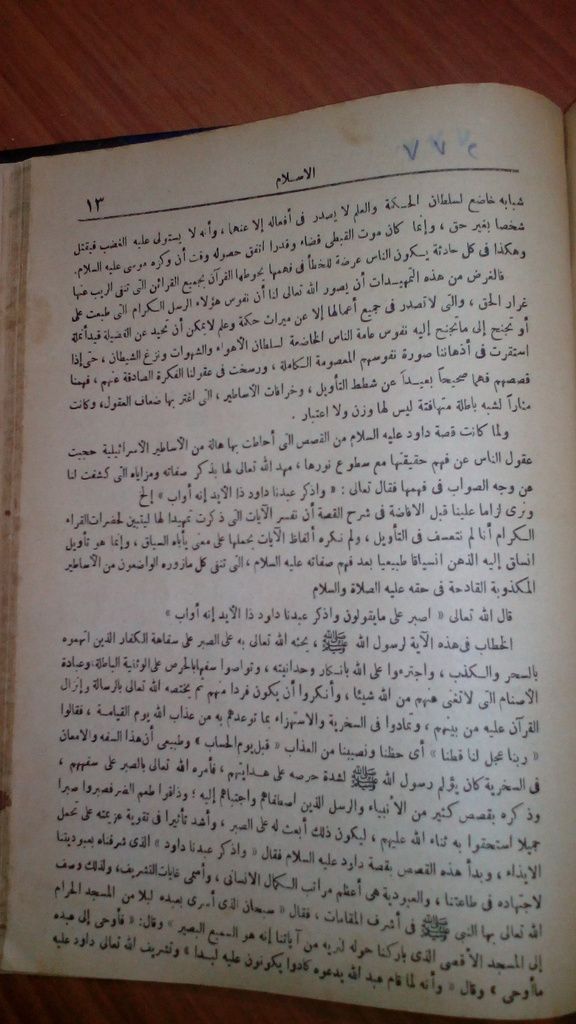 ٧ ٧ ٢
الاسلام
١٣
شبابه خاضع لسلطان الحكمة والعلم لا يصدر فى أفعاله إلا عنهما ، وأنه لا يستولى عليه الغضب فيقتل
شخصا بغير حق ، وإنما كان موت القبطى قضاء وقدرا اتفق حصوله وقت أن وكزه موسى عليه السلام.
وهكذا فى كل حادثة يكون الناس عرضة للخطأ فى فهمها يحوطها القرآن بجميع القرائن التى تنفى الريب عنها
فالغرض من هذه التمهيدات أن يصور الله تعالى لنا أن نفوس هؤلاء الرسل الكرام التى طبعت على
غرار الحق ، والتى لا تصدر فى جميع أعمالها إلا عن ميراث حكمة وعلم لا يمكن أن تحيد عن الفضيلة قيد أنملة
أو تجنح إلى ما تجنح إليه نفوس عامة الناس الخاضعة لسلطان الأهواء والشهوات ونزغ الشيطان ، حتى إذا
استقرت فى أذهاننا صورة نفوسهم المعصومة الكاملة ، ورسخت فى عقولنا الفكرة الصادقة عنهم ، فهمنا
قصصهم فهما صحيحاً بعيداً عن شطط التأويل ، وخرافات الأساطير ، التى اغتر بها ضعاف العقول، وكانت
مثاراً لشبه باطلة متهافتة ليس لها وزن ولا اعتبار .
ولما كانت قصة داود عليه السلام من القصص التى أحاطت بها هالة من الأساطير الاسرائيلية حجبت
عقول الناس عن فهم حقيقتها مع سطوع نورها ، مهد الله تعالى لها بذكر صفاته ومزاياه التى كشفت لنا
عن وجه الصواب فى فهمها فقال تعالى : « واذكر عبدنا داود ذا الأيد إنه أواب » إلخ
ونرى لزاما علينا قبل الافاضة فى شرح القصة أن نفسر الآيات التى ذكرت تمهيدا لها ليتبين لحضرات القراء
الكرام أنا لم نتعسف فى التأويل ، ولم نكره ألفاظ الآيات بحملها على معنى يأباه السياق ، وإنما هو تأويل
انساق إليه الذهن انسياقا طبيعيا بعد فهم صفاته عليه السلام ، التى تنفى كل مازوره الواضعون من الأساطير
المكذوبة القادحة فى حقه عليه الصلاة والسلام
قال الله تعالى « اصبر على مايقولون واذكر عبدنا داود ذا الأيد إنه أواب »
الخطاب فى هذه الآية لرسول الله ﷺ ، يحثه الله تعالى به على الصبر على سفاهة الكفار الذين اتهموه
بالسحر والكذب ، واجترءوا على الله بانكار وحدانيته ، وتواصوا سفها بالحرص على الوثنية الباطلة وعبادة
الأصنام التى لا تغنى عنهم من الله شيئا ، وأنكروا أن يكون فردا منهم ثم يختصه الله تعالى بالرسالة وإنزال
القرآن عليه من بينهم ، وتمادوا فى السخرية والاستهزاء بما توعدهم به من عذاب الله يوم القيامة ، فقالوا
« ربنا عجل لنا قطنا » أى حظنا ونصيبنا من العذاب « قبل يوم الحساب » وطبيعى أن هذا السفه والامعان
فى السخرية كان يؤلم رسول الله ﷺ لشدة حرصه على هدايتهم ، فأمره الله تعالى بالصبر على سفههم ،
وذكره بقصص كثير من الأنبياء والرسل الذين اصطفاهم واجتباهم إليه ؛ وذاقوا طعم الضر فصبروا صبرا
جميلا استحقوا به ثناء الله عليهم ، ليكون ذلك أبعث له على الصبر ، وأشد تأثيرا فى تقوية عزيمته على تحمل
الايذاء ، وبدأ هذه القصص بقصة داود عليه السلام فقال « واذكر عبدنا داود » الذى شرفناه بعبوديتنا
لاجتهاده فى طاعتنا ، والعبودية هى أعظم مراتب الكمال الانسانى ، وأسمى غايات التشريف، ولذلك وصف
الله تعالى بها النبى ﷺ فى أشرف المقامات ، فقال « سبحان الذى أسرى بعبده ليلا من المسجد الحرام
إلى المسجد الأقصى الذى باركنا حوله لنريه من آياتنا إنه هو السميع البصير » وقال: « فأوحى إلى عبده
ماأوحى » وقال « وأنه لما قام عبد الله يدعوه كادوا يكونون عليه لبدا » وتشريف الله تعالى داود عليه